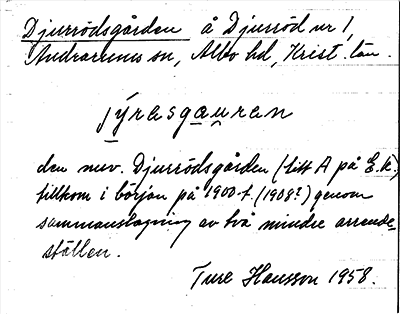 Djurrödsgården å Djurröd nr 1,
Andrarums sn, Albo hd, Krist. län.
jýrasgau̲ran
den nuv. Djurrödsgården (litt A på E.k.)
tillkom i början på 1900-t. (1908?) genom
sammanslagning av två mindre arrende-
ställen.
Ture Hansson 1958.